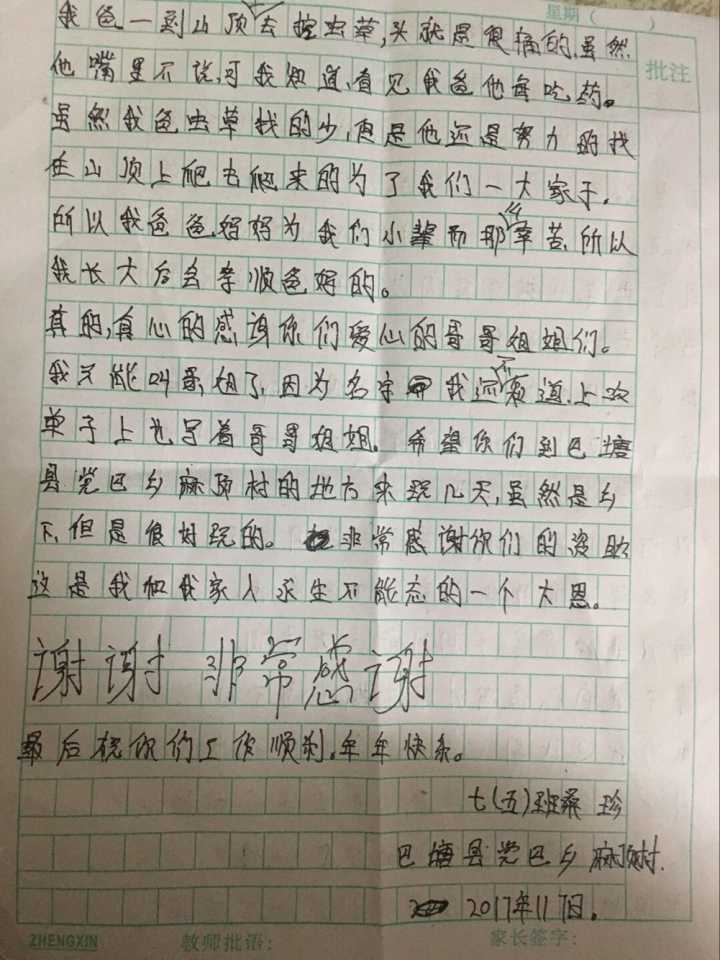 星期( )
批注
我爸一到山顶去挖虫草,头就是很痛的,虽然
他嘴里不说,可我知道,看见我爸他每吃药。
虽然我爸虫草找的少,但是他还是努力的找
在山顶上爬去爬来的为了我们一大家子。
所以我爸爸妈妈为我们小辈而那么辛苦,所以
我长大后会孝顺爸妈的。
真的,真心的感谢你们爱仙的哥哥姐姐们。
我只能叫哥,姐了,因为名字 我还不知道,上次
单子上也写着哥哥姐姐,希望你们到巴塘
县党巴乡麻顶村的地方来玩几天,虽然是乡
下,但是很好玩的。 非常感谢你们的资助
这是我和我家人永生不能忘的一个大恩。
谢谢 非常感谢
最后祝你们工作顺利,年年快乐。
七(五)班桑 珍
巴塘县党巴乡麻顶村.
2017年11 7日。
ZHENGXIN 教师批语: 家长签字: